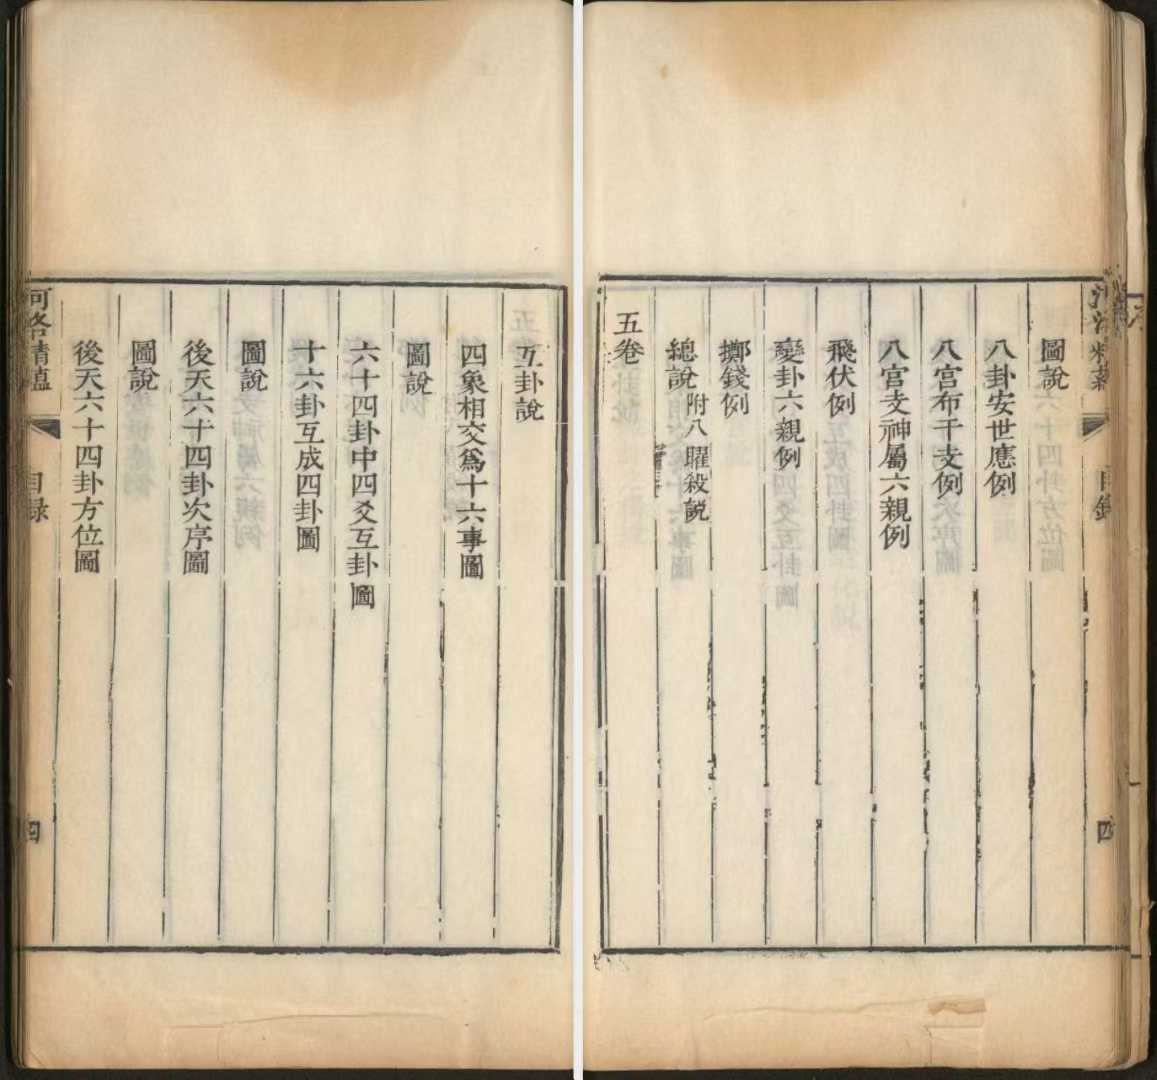 河洛精蘊
目錄
四
圖說
八卦安世應例
八宮布干支例
八宮支神屬六親例
飛伏例
變卦六親例
擲錢例
總說附八曜殺說
五卷
互卦說
四象相交爲十六事圖
圖說
六十四卦中四爻互卦圖
十六卦互成四卦圖
圖說
後天六十四卦次序圖
圖說
後天六十四卦方位圖
河洛精蘊
目録
四